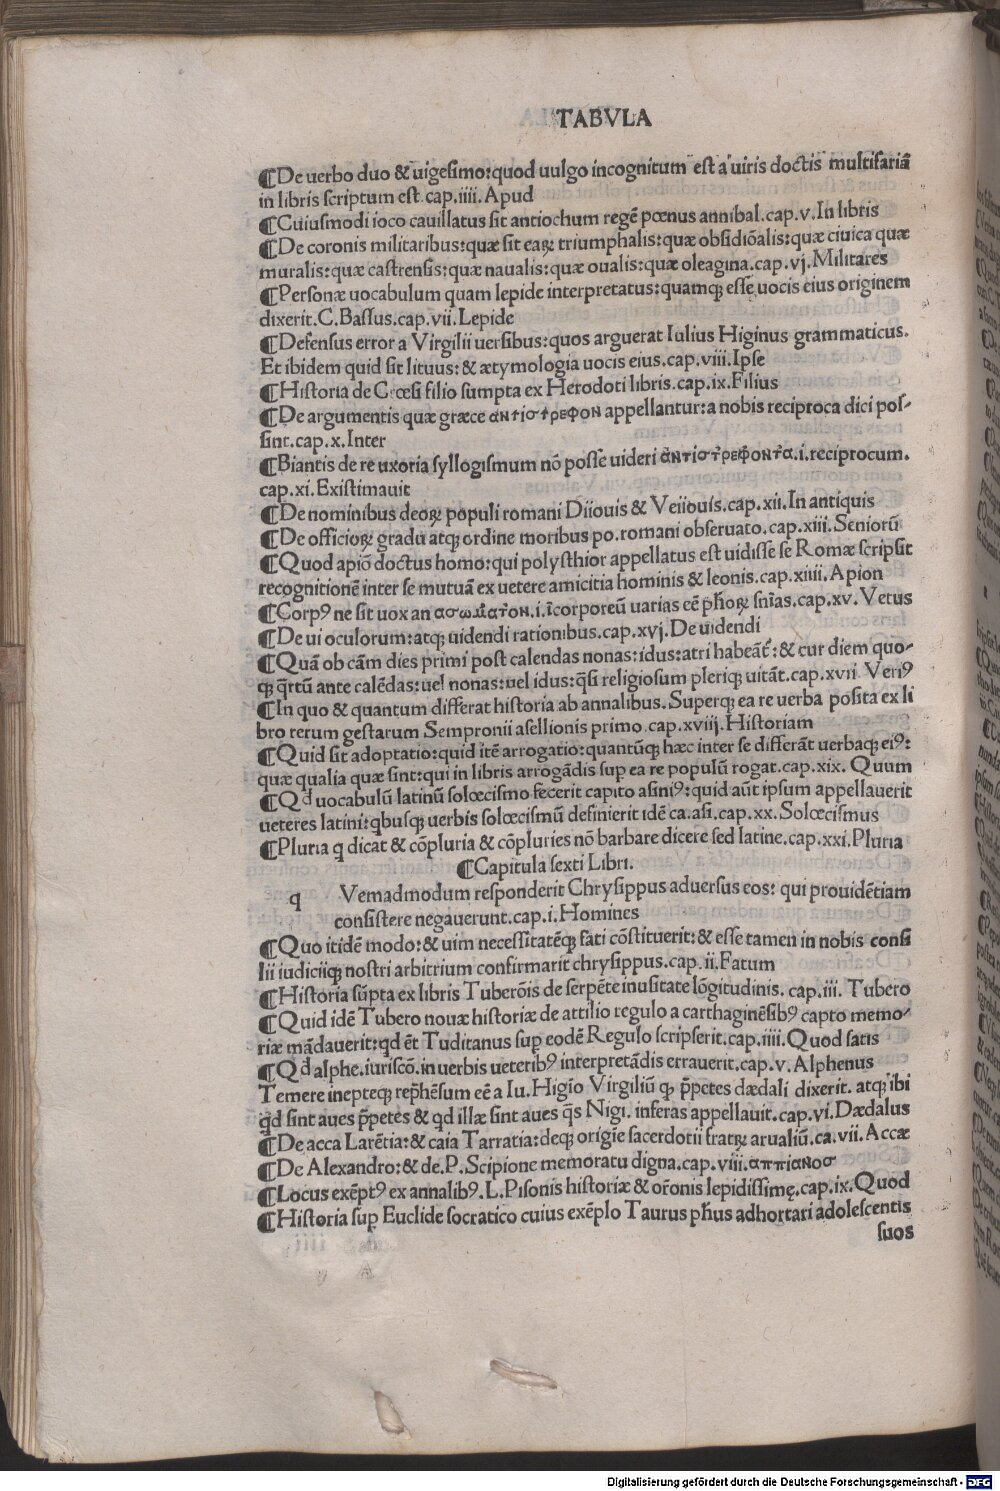 TABVLA
¶De uerbo duo & uigesimo:quod uulgo incognitum est a uiris doctis multifariā
in libris scriptum est cap.iiii.Apud
¶Cuiusmodi ioco cauillatus sit antiochum regē pœnus annibal.cap.v.In libris
¶De coronis militaribus:quæ sit eaꝝ triumphalis:quæ obsidiōalis:quæ ciuica quæ
muralis:quæ castrensis:quæ naualis:quæ oualis:quæ oleagina.cap.vj.Militares
¶Personæ uocabulum quam lepide interpretatus:quamqȝ esse uocis eius originem
dixerit.C.Bassus.cap.vii.Lepide
¶Defensus error a Virgilii uersibus:quos arguerat Iulius Higinus grammaticus.
Et ibidem quid sit lituus:& ætymologia uocis eius.cap.viii.Ipse
¶Historia de Crœsi filio sumpta ex Herodoti libris.cap.ix.Filius
¶De argumentis quæ græce αντιστρεφον appellantur:a nobis reciproca dici pos-
sint.cap.x.Inter
¶Biantis de re uxoria syllogismum nō posse uideri ἀντιστρεφοντα.i.reciprocum.
cap.xi.Existimauit
¶De nominibus deoꝝ populi romani Diiouis & Veiiouis.cap.xii.In antiquis
¶De officioꝝ gradu atqȝ ordine moribus po.romani obseruato.cap.xiii.Seniorū
¶Quod apiō doctus homo:qui polysthior appellatus est uidisse se Romæ scripsit
recognitionē inter se mutuā ex uetere amicitia hominis & leonis.cap.xiiii.Apion
¶Corpꝰ ne sit uox an ασωματον.i.īcorporeū uarias eē ph̄oꝝ sn̄ias.cap.xv.Vetus
¶De ui oculorum:atqȝ uidendi rationibus.cap.xvj.De uidendi
¶Quā ob cām dies primi post calendas nonas:idus:atri habeāt᷑:& cur diem quo-
qȝ q̄rtū ante calēdas:uel nonas:uel idus:q̄si religiosum pleriqȝ uitāt.cap.xvii Veriꝰ
¶In quo & quantum differat historia ab annalibus.Superqȝ ea re uerba posita ex li
bro rerum gestarum Sempronii asellionis primo.cap.xviij.Historiam
¶Quid sit adoptatio:quid itē arrogatio:quantūqȝ hæc inter se differāt uerbaqȝ eiꝰ:
quæ qualia quæ sint:qui in libris arrogādis sup ea re populū rogat.cap.xix. Quum
¶Qd uocabulū latinū solœcismo fecerit capito asiniꝰ:quid aūt ipsum appellauerit
ueteres latini:qbusqȝ uerbis solœcismū definierit idē ca.asi.cap.xx.Solœcismus
¶Pluria q dicat & cōpluria & cōpluries nō barbare dicere sed latine.cap.xxi.Pluria
¶Capitula sexti Libri.
q Vemadmodum responderit Chrysippus aduersus eos: qui prouidētiam
consistere negauerunt.cap.i.Homines
¶Quo itidē modo:& uim necessitatēqȝ fati cōstituerit:& esse tamen in nobis consi
lii iudiciiqȝ nostri arbitrium confirmarit chrysippus.cap.ii.Fatum
¶Historia sūpta ex libris Tuberōis de serpēte inusitate lōgitudinis. cap.iii. Tubero
¶Quid idē Tubero nouæ historiæ de attilio regulo a carthaginēsibꝰ capto memo-
riæ mādauerit:qd ēt Tuditanus sup eodē Regulo scripserit.cap.iiii.Quod satis
¶Qd alphe.iuriscō.in uerbis ueteribꝰ interpretādis errauerit.cap.v.Alphenus
Temere inepteqȝ rep̄hēsum eē a Iu.Higīo Virgiliū qȝ p̄petes dædali dixerit. atqȝ ibi
qd sint aues p̄petes & qd illæ sint aues q̄s Nigi. inferas appellauit.cap.vi.Dædalus
¶De acca Larētia:& caia Tarratia:deqȝ origīe sacerdotii fratꝝ arualiū.ca.vii.Accæ
¶De Alexandro:& de.P.Scipione memoratu digna.cap.viii.αππιανοσ
¶Locus exēptꝰ ex annalibꝰ.L.Pisonis historiæ & or̄onis lepidissimę.cap.ix.Quod
¶Historia sup Euclide socratico cuius exēplo Taurus ph̄us adhortari adolescentis
suos
Digitalisierung gefördert durch die Deutsche Forschungsgemeinschaft - DFG